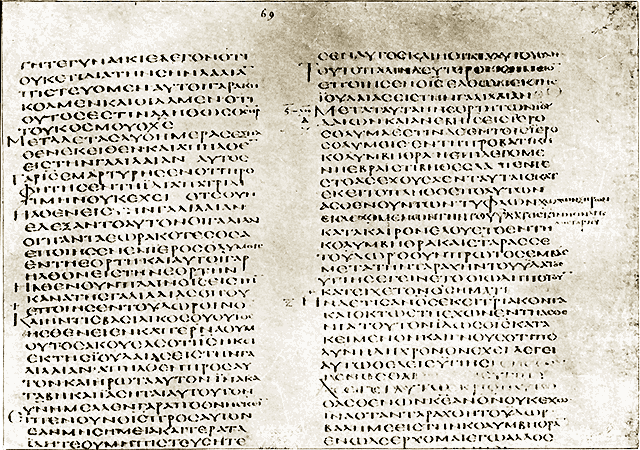 69
ΤΗΤΕΓΥΝΑΙΚΙΕΛΕΓΟΝΟΤΙ
ΟΥΚΕΤΙΔΙΑΤΗΝϹΗΝΛΑΛΙΑ
ΠΙϹΤΕΥΟΜΕΝΑΥΤΟΙΓΑΡΑΚΗ
ΚΟΑΜΕΝΚΑΙΟΙΔΑΜΕΝΟΤΙ
ΟΥΤΟϹΕϹΤΙΝΑΛΗΘΩϹΟϹΩΤΗΡ
ΤΟΥΚΟϹΜΟΥΟΧϹ
ΜΕΤΑΔΕΤΑϹΔΥΟΗΜΕΡΑϹΕΞΗΛ
ΘΕΝΕΚΕΙΘΕΝΚΑΙΑΠΗΛΘΕ
ΕΙϹΤΗΝΓΑΛΙΛΑΙΑΝ ΑΥΤΟϹ
ΓΑΡΙϹΕΜΑΡΤΥΡΗϹΕΝΟΤΙΠΡΟ
ΦΗΤΗϹΕΝΤΗΙΔΙΑΠΑΤΡΙΔΙ
ΤΙΜΗΝΟΥΚΕΧΕΙ ΟΤΕΟΥΝ
ΗΛΘΕΝΕΙϹΤΗΝΓΑΛΙΛΑΙΑΝ
ΕΔΕΞΑΝΤΟΑΥΤΟΝΟΙΓΑΛΙΛΑΙΟΙ
ΟΙΠΑΝΤΑΕΩΡΑΚΟΤΕϹΟϹΑ
ΕΠΟΙΗϹΕΝΕΝΙΕΡΟϹΟΛΥΜΟΙϹ
ΕΝΤΗΕΟΡΤΗΚΑΙΑΥΤΟΙΓΑΡ
ΗΛΘΟΝΕΙϹΤΗΝΕΟΡΤΗΝ
ΗΛΘΕΝΟΥΝΠΑΛΙΝΟΙϹΕΙϹΤΗ
ΚΑΝΑΤΗϹΓΑΛΙΛΑΙΑϹΟΠΟΥ
ΕΠΟΙΗϹΕΝΤΟΥΔΩΡΟΙΝΟ
ΚΑΙΗΝΤΙϹΒΑϹΙΛΙΚΟϹΟΥΟΥΙΟϹ
ΗϹΘΕΝΕΙΕΝΚΑΠΕΡΝΑΟΥΜ
ΟΥΤΟϹΑΚΟΥϹΑϹΟΤΙΙϹΗΚΕΙ
ΕΚΤΗϹΙΟΥΔΑΙΑϹΕΙϹΤΗΝΓΑ
ΛΙΛΑΙΑΝΑΠΗΛΘΕΠΡΟϹΑΥ
ΤΟΝΚΑΙΗΡΩΤΑΑΥΤΟΝΙΝΑΚΑ
ΤΑΒΗΚΑΙΙΑϹΗΤΑΙΑΥΤΟΥΤΟΝ
ΥΝΗΜΕΛΛΕΝΓΑΡΑΠΟΘΝΗϹΚΕΙ
ΕΙΠΕΝΟΥΝΟΙϹΠΡΟϹΑΥΤΟΝ
ΕΑΝΜΗϹΗΜΕΙΑΚΑΙΤΕΡΑΤΑ
ΙΔΗΤΕΟΥΜΗΠΙϹΤΕΥϹΗΤΕ
ϹΕΝΑΥΤΟϹΚΑΙΗ
ΤΟΥΤΟΠΑΛΙΝΔΕΥΤΕΡΟΝϹΗΜΕΙΟ
ΕΠΟΙΗϹΕΝΟΙϹΕΛΘΩΝΕΚΤΗϹ
ΙΟΥΔΑΙΑϹΕΙϹΤΗΝΓΑΛΙΛΑΙΑΝ
ΜΕΤΑΤΑΥΤΑΗΝΕΟΡΤΗΤΩΝΙΟΥ
ΔΑΙΩΝΚΑΙΑΝΕΒΗΙϹΕΙϹΙΕΡΟ
ϹΟΛΥΜΑΕϹΤΙΝΔΕΕΝΤΟΙϹΙΕΡΟ
ϹΟΛΥΜΟΙϹΕΝΤΗΠΡΟΒΑΤΙΚΗ
ΚΟΛΥΜΒΗΘΡΑΗΕΠΙΛΕΓΟΜΕ
ΝΗΕΒΡΑΙϹΤΙΒΗΘΕϹΔΑΠΕΝΤΕ
ϹΤΟΑϹΕΧΟΥϹΑΕΝΤΑΥΤΑΙϹΚΑΤ
ΕΚΕΙΤΟΠΛΗΘΟϹΠΟΛΥΤΩΝ
ΑϹΘΕΝΟΥΝΤΩΝΤΥΦΛΩΝΧΩΛΩΝΞΗΡΩΝ
ΚΑΤΑΚΑΙΡΟΝΕΛΟΥΕΤΟΕΝΤΗ
ΚΟΛΥΜΒΗΘΡΑΚΑΙΕΤΑΡΑϹϹΕ
ΤΟΥΔΩΡΟΟΥΝΠΡΩΤΟϹΕΜΒΑϹ
ΜΕΤΑΤΗΝΤΑΡΑΧΗΝΤΟΥΥΔΑΤΟϹ
ΥΓΙΗϹΕΓΙΝΕΤΟ
ΚΑΤΕΙΧΕΤΟΝΟϹΗΜΑΤΙ
ΗΝΔΕΤΙϹΑΝΟϹΕΚΕΙΤΡΙΑΚΟΝΤΑ
ΚΑΙΟΚΤΩΕΤΗΕΧΩΝΕΝΤΗΑϹΘΕ
ΝΙΑΤΟΥΤΟΝΙΔΩΝΟΙϹΚΑΤΑ
ΚΕΙΜΕΝΟΝΚΑΙΓΝΟΥϹΟΤΙΠΟ
ΛΥΝΗΔΗΧΡΟΝΟΝΕΧΕΙΛΕΓΕΙ
ΑΥΤΩΘΕΛΕΙϹΥΓΙΗϹ
ΟΑϹΘΕΝΩΝΚΕΑΝΟΝΟΥΚΕΧΩ
ΙΝΑΟΤΑΝΤΑΡΑΧΘΗΤΟΥΔΩΡ
ΒΑΛΗΜΕΕΙϹΤΗΝΚΟΛΥΜΒΗΘΡΑ
ΕΝΩΔΕΕΡΧΟΜΑΙΕΓΩΑΛΛΟϹ